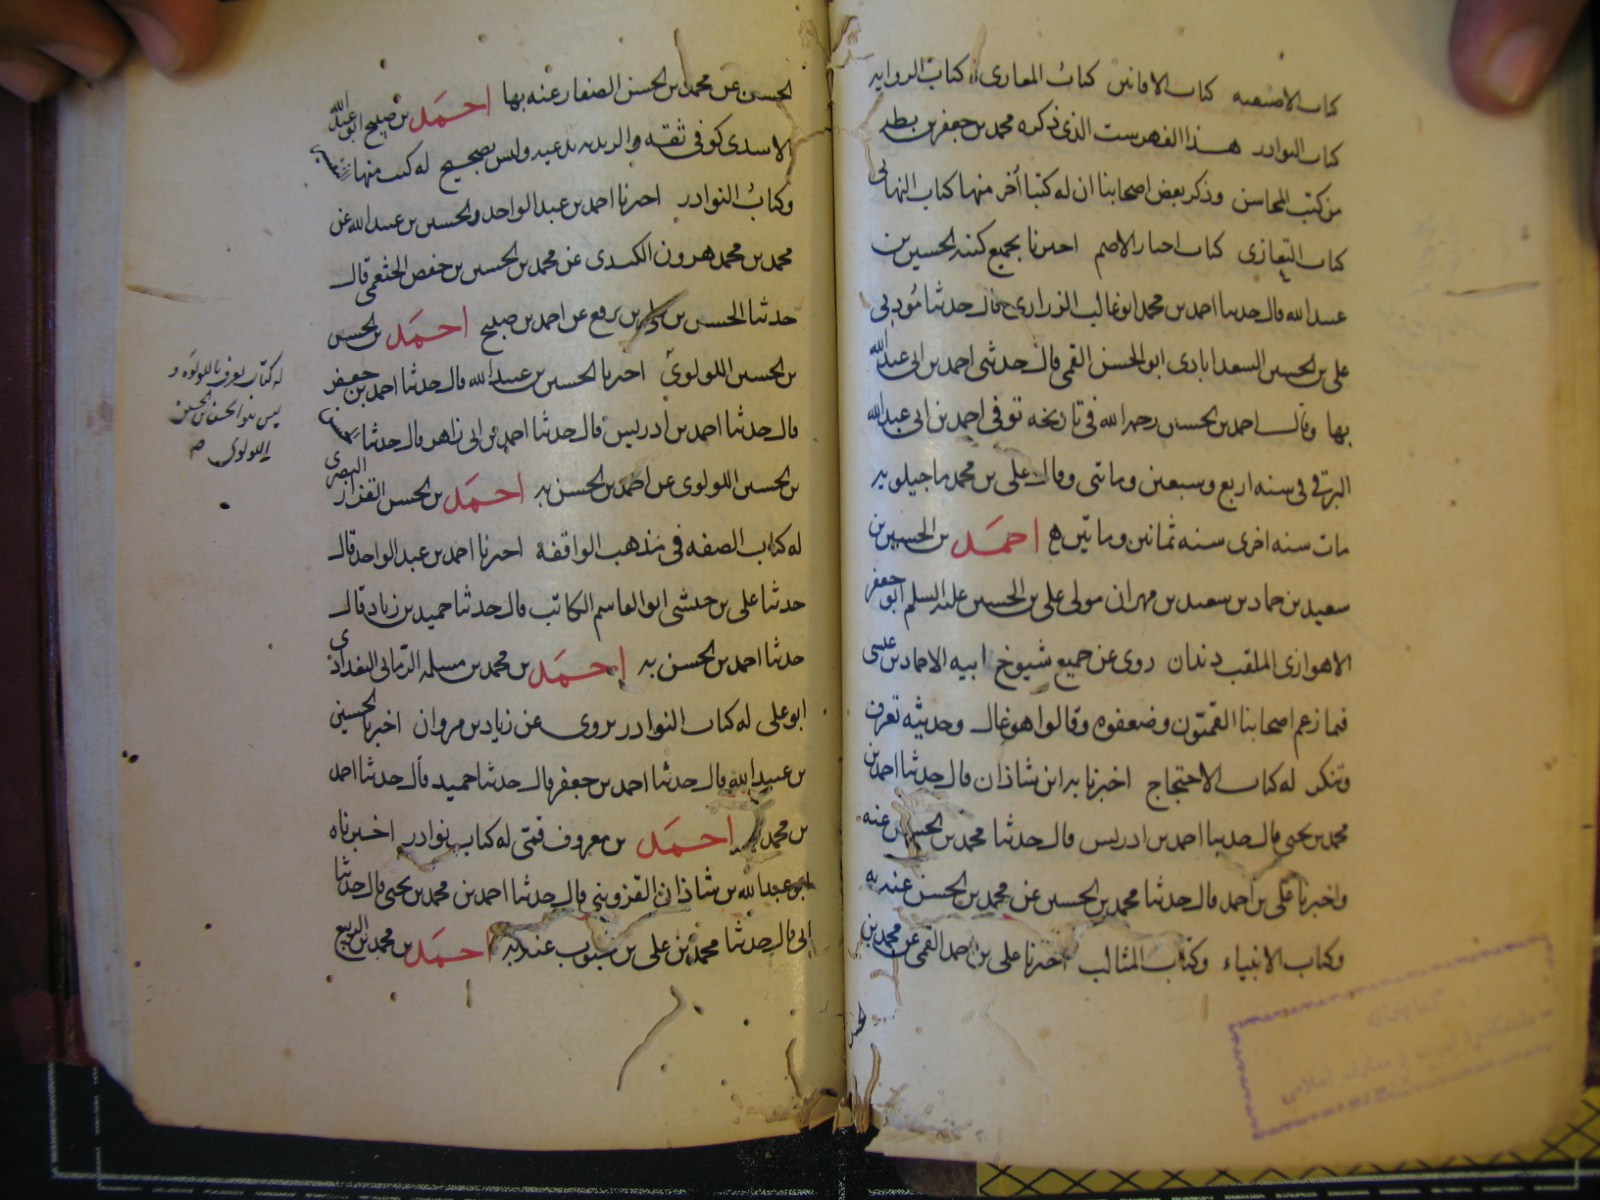 كتاب الاصفيه كتاب الافانين كتاب المغازى كتاب الروايه
كتاب النوادر هذا الفهرست الذى ذكره محمد بن جعفر بن بطه
من كتب المحاسن وذكر بعض اصحابنا ان له كتبا أخر منها كتاب التهانى
كتاب التعازى كتاب اخبار الاصم اخبرنا بجميع كتبه الحسين بن
عبيد الله قال حدثنا احمد بن محمد ابو غالب الزرارى قال حدثنا مؤدبى
على بن الحسين السعدابادى ابو الحسن القمى قال حدثنى احمد بن ابى عبد الله
بها وقال احمد بن الحسين رحمه الله فى تاريخه توفى احمد بن ابى عبد الله
البرقى فى سنه اربع وسبعين وماتى وقال على بن محمد ماجيلويه
مات سنه اخرى سنه ثمانين وماتين احمد بن الحسين بن
سعيد بن حماد بن سعيد بن مهران مولى على بن الحسين عليه السلم ابو جعفر
الاهوازى الملقب دندان روى عن جميع شيوخ ابيه الا حماد بن عيسى
فيما زعم اصحابنا القميون وضعفوه وقالوا هو غال وحديثه تعرف
وتنكر له كتاب الاحتجاج اخبرنا به ابن شاذان قال حدثنا احمد بن
محمد بن يحيى قال حدثنا احمد بن ادريس قال حدثنا محمد بن الحسن عنه
واخبرنا على بن احمد قال حدثنا محمد بن الحسن عن محمد بن الحسن عنه به
وكتاب الانبياء وكتاب المثالب اخبرنا على بن احمد القمى عن محمد بن
الحسن
الحسن عن محمد بن الحسن الصفار عنه بها احمد بن صبيح ابو عبد الله
الاسدى كوفى ثقه والزيديه تدعيه وليس بصحيح له كتب منها
وكتاب النوادر اخبرنا احمد بن عبد الواحد والحسين بن عبيد الله عن
محمد بن محمد هرون الكندى عن محمد بن الحسين بن حفص الخثعمى قال
حدثنا الحسن بن على بن بزيع عن احمد بن صبيح احمد بن الحسن
بن الحسين اللولوى اخبرنا الحسين بن عبيد الله قال حدثنا احمد بن جعفر
قال حدثنا احمد بن ادريس قال حدثنا احمد بن ابى زاهر قال حدثنا
بن الحسين اللولوى عن احمد بن الحسن به احمد بن الحسن القزاز البصرى
له كتاب الصفه فى مذهب الواقفة اخبرنا احمد بن عبد الواحد قال
حدثنا على بن حبشى ابو القاسم الكاتب قال حدثنا حميد بن زياد قال
حدثنا احمد بن الحسن به احمد بن محمد بن مسلمه الرمانى البغدادى
ابو على له كتاب النوادر يروى عن زياد بن مروان اخبرنا الحسين
بن عبيد الله قال حدثنا احمد بن جعفر قال حدثنا حميد قال حدثنا احمد
بن محمد احمد بن معروف قمى له كتاب نوادر اخبرناه
ابو عبد الله بن شاذان القزوينى قال حدثنا احمد بن محمد بن يحيى قال حدثنا
ابى قال حدثنا محمد بن على بن محبوب عنه به احمد بن محمد بن الربيع
له كتاب يعرف باللولوه و
ليس هو الحسن بن الحسين
اللولوى